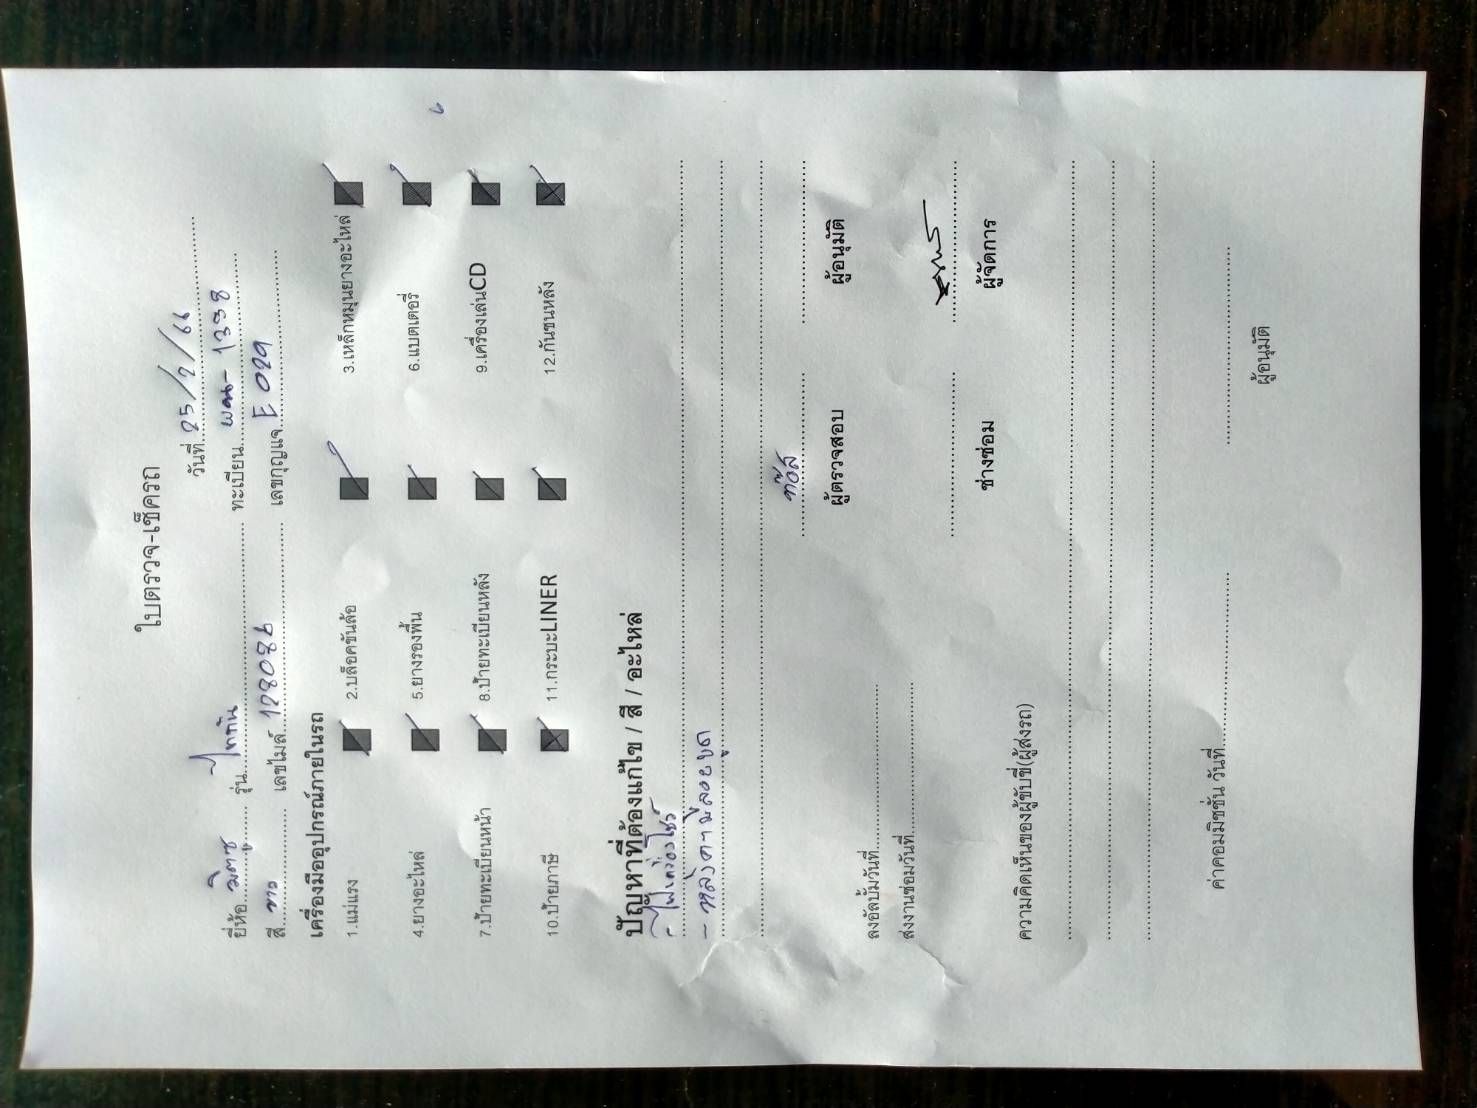 ใบตรวจ-เช็ครถ
วันที่ 25/2/66
ยี่ห้อ มิตซู รุ่น ไททัน ทะเบียน
สี ขาว เลขไมล์ 128086 เลขกุญแจ E 029
เครื่องมืออุปกรณ์ภายในรถ
1.แม่แรง 2.บล็อคขันล้อ 3.เหล็กหมุนยางอะไหล่
4.ยางอะไหล่ 5.ยางรองพื้น 6.แบตเตอรี่
7.ป้ายทะเบียนหน้า 8.ป้ายทะเบียนหลัง 9.เครื่องเล่นCD
10.ป้ายภาษี 11.กระบะLINER 12.กันชนหลัง
ปัญหาที่ต้องแก้ไข / สี / อะไหล่
- ไฟเครื่องโชว์
- หลังคามีลอยบุด
ท๊อส
ผู้ตรวจสอบ ผู้อนุมัติ
ลงอัลบั้มวันที่
ส่งงานซ่อมวันที่
ช่างซ่อม ผู้จัดการ
ความคิดเห็นของผู้ขับขี่(ผู้ส่งรถ)
ค่าคอมมิชชั่น วันที่
ผู้อนุมัติ